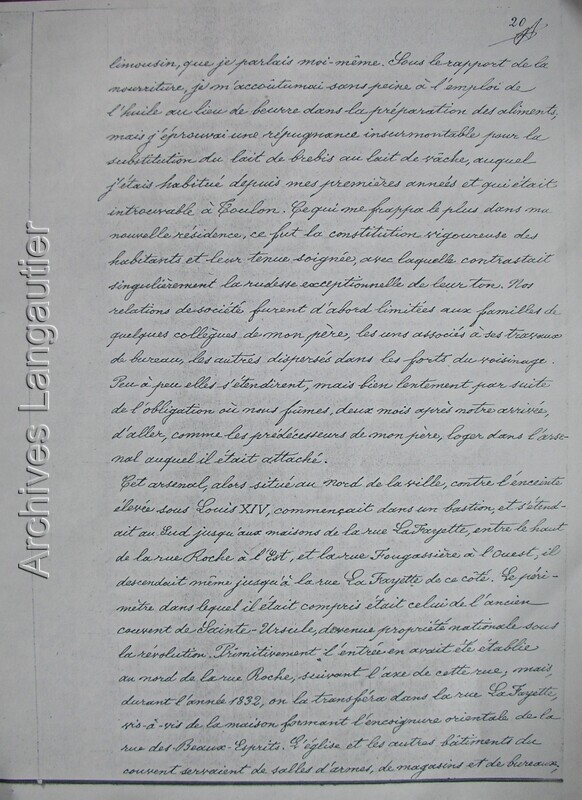 20
limousin, que je parlais moi-même. Sous le rapport de la
nourriture, je m'accoûtumai sans peine à l'emploi de
l'huile au lieu de beurre dans la préparation des aliments,
mais j'éprouvai une répugnance insurmontable pour la
substitution du lait de brebis au lait de vâche, auquel
j'étais habitué depuis mes premières années et qui était
introuvable à Toulon. Ce qui me frappa le plus dans ma
nouvelle résidence, ce fut la constitution vigoureuse des
habitants et leur tenue soignée, avec laquelle contrastait
singulièrement la rudesse exceptionnelle de leur ton. Nos
relations de société furent d'abord limitées aux familles de
quelques collègues de mon père, les uns associés à ses travaux
de bureau, les autres dispersés dans les forts du voisinage.
Peu à peu elles s'étendirent, mais bien lentement par suite
de l'obligation où nous fûmes, deux mois après notre arrivée,
d'aller, comme les prédécesseurs de mon père, loger dans l'arse-
nal auquel il était attaché.
Cet arsenal, alors situé au nord de la ville, contre l'enceinte
élevée sous Louis XIV, commençait dans un bastion, et s'étend-
ait au Sud jusqu'aux maisons de la rue La Fayette, entre le haut
de la rue Roche à l'Est, et la rue Fougassière à l'Ouest, il
descendait même jusqu'à la rue La Fayette de ce côté. Le péri-
mètre dans lequel il était compris était celui de l'ancien
couvent de Sainte-Ursule, devenue propriété nationale sous
la révolution. Primitivement l'entrée en avait été établie
au nord de la rue Roche, suivant l'axe de cette rue, mais,
durant l'année 1832, on la transféra dans la rue La Fayette,
vis-à-vis de la maison formant l'encoignure orientale de la
rue des Beaux-Esprits. L'église et les autres bâtiments du
couvent servaient de salles d'armes, de magasins et de bureaux,
Archives Langautier